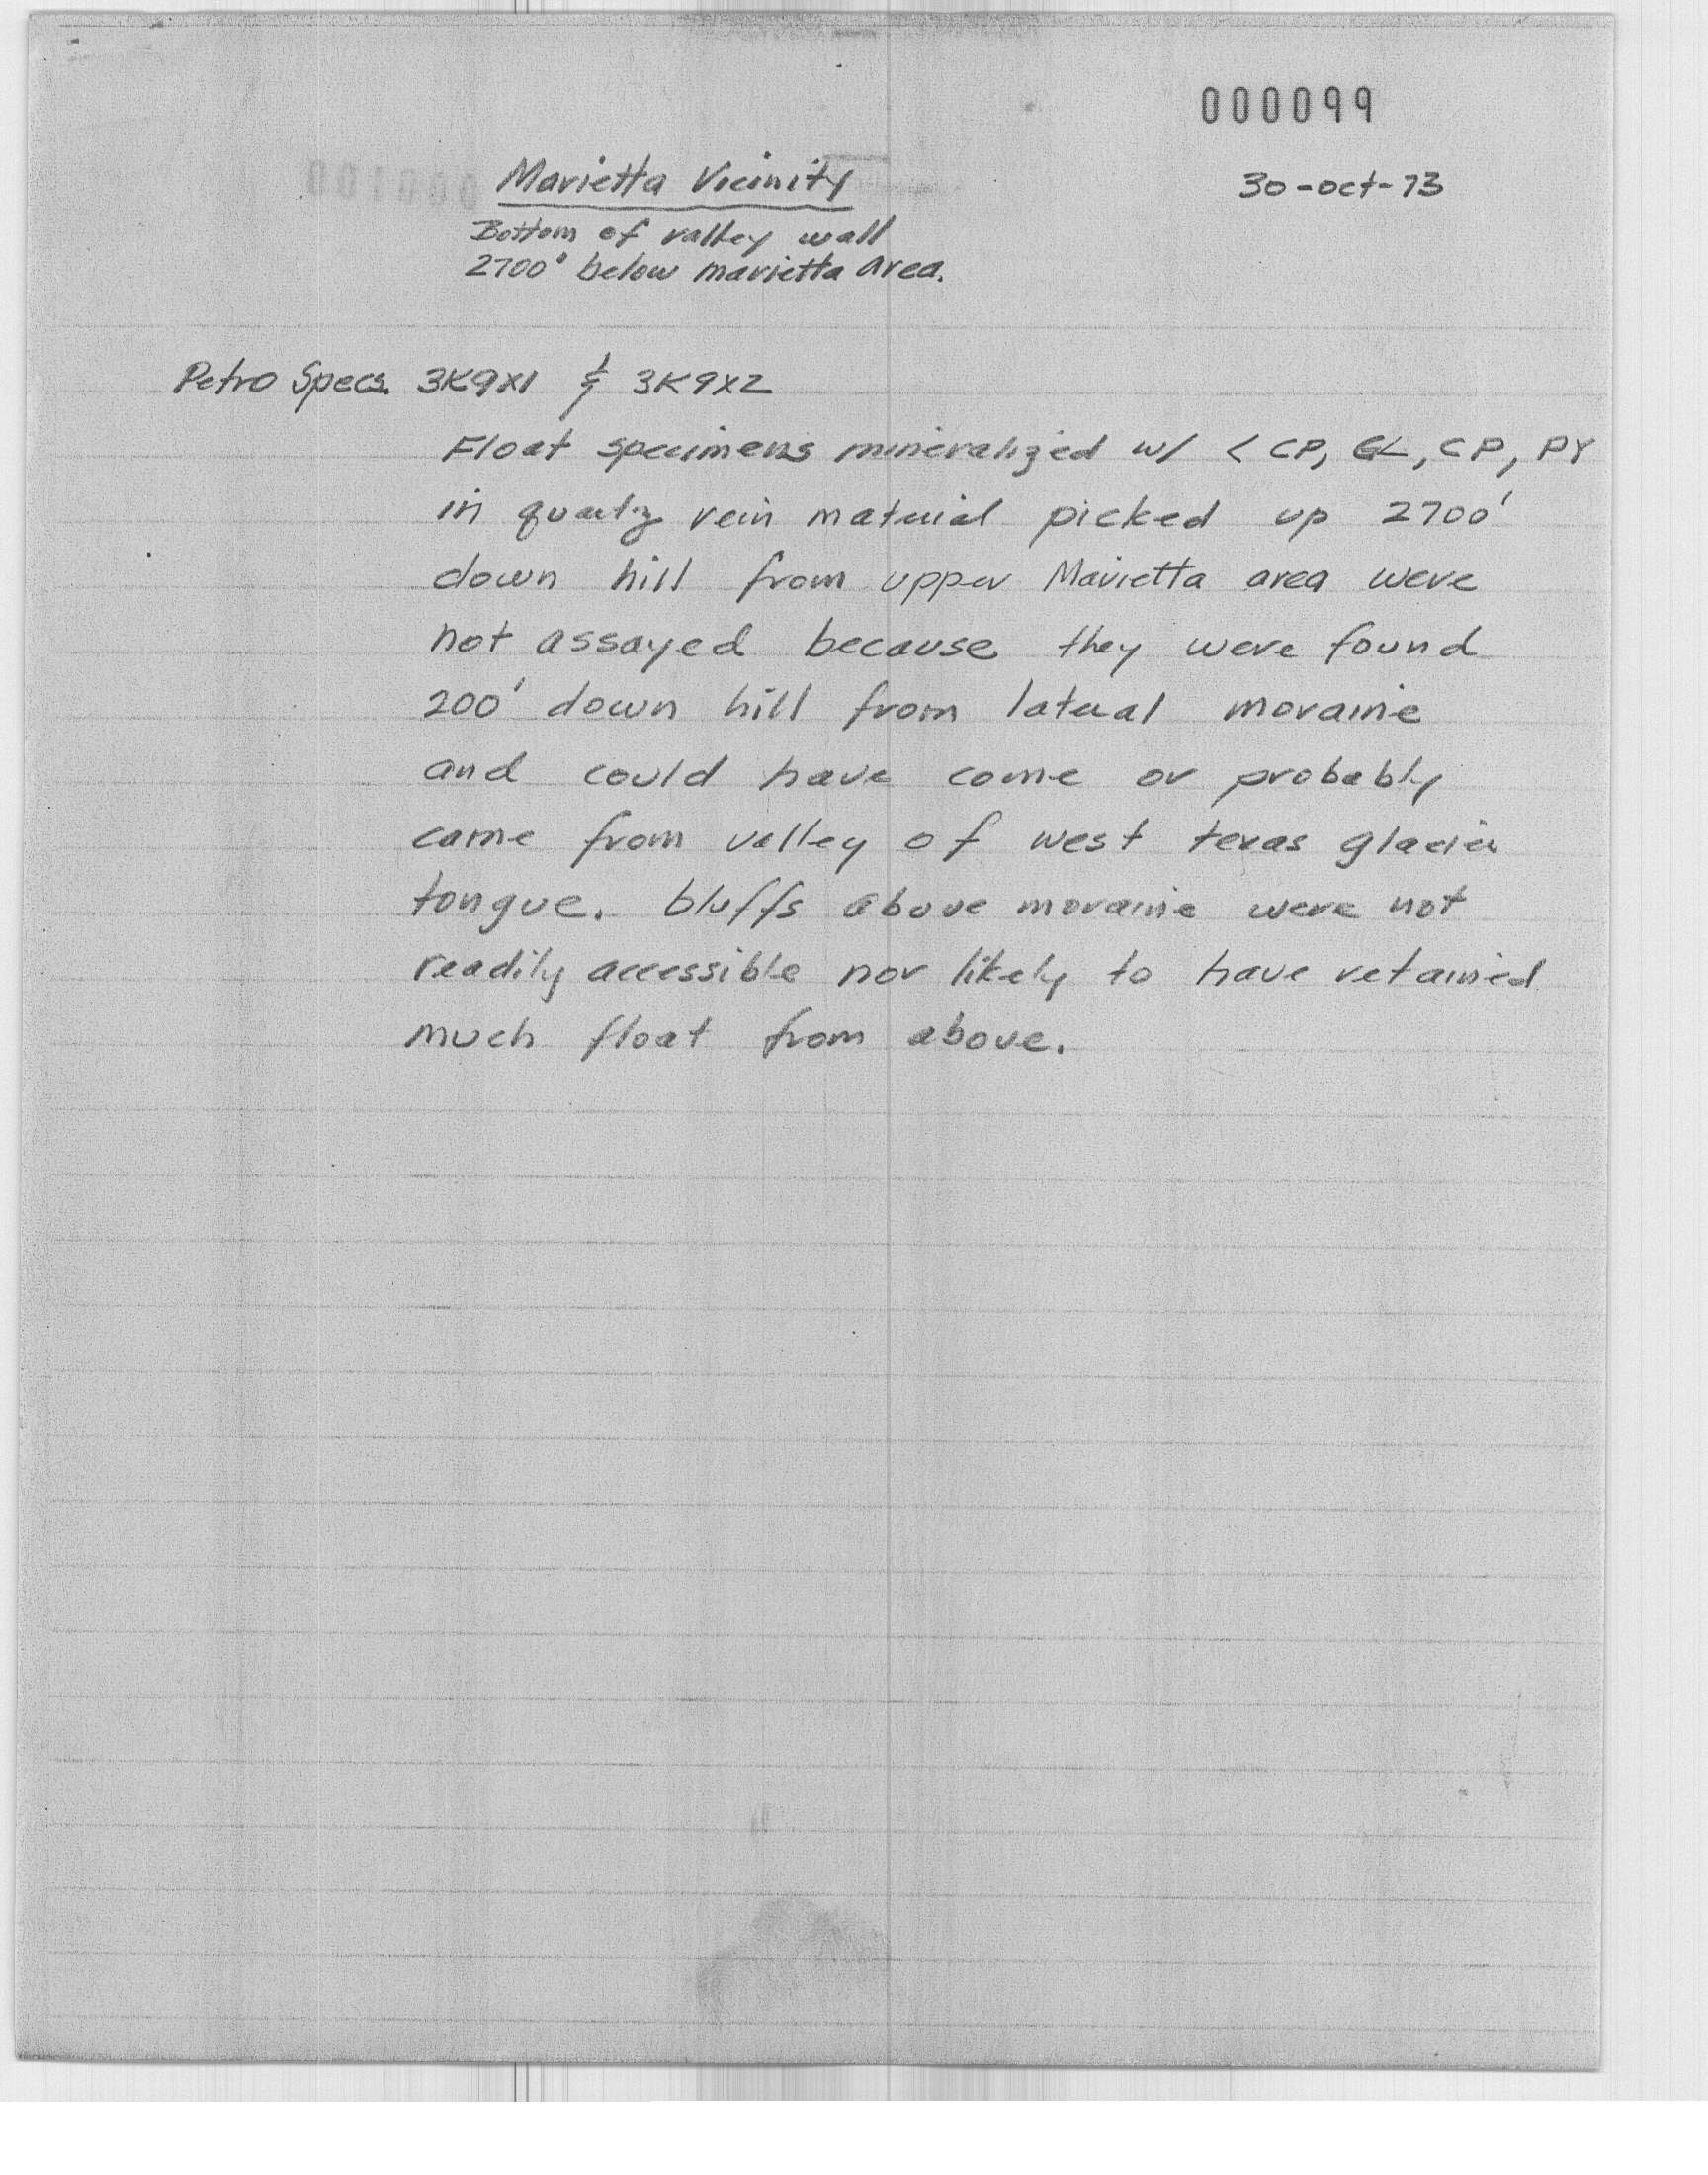 000099
Marietta Vicinity
30-oct-73
Bottom of valley wall
2700' below marietta area.
Petro Specs. 3K9X1 & 3K9X2
Float specimens mineralized w/ < CP, GL, CP, PY
in quartz vein material picked up 2700'
down hill from upper Marietta area were
not assayed because they were found
200' down hill from lateral moraine
and could have come or probably
came from valley of west texas glacier
tongue. bluffs above moraine were not
readily accessible nor likely to have retained
much float from above.